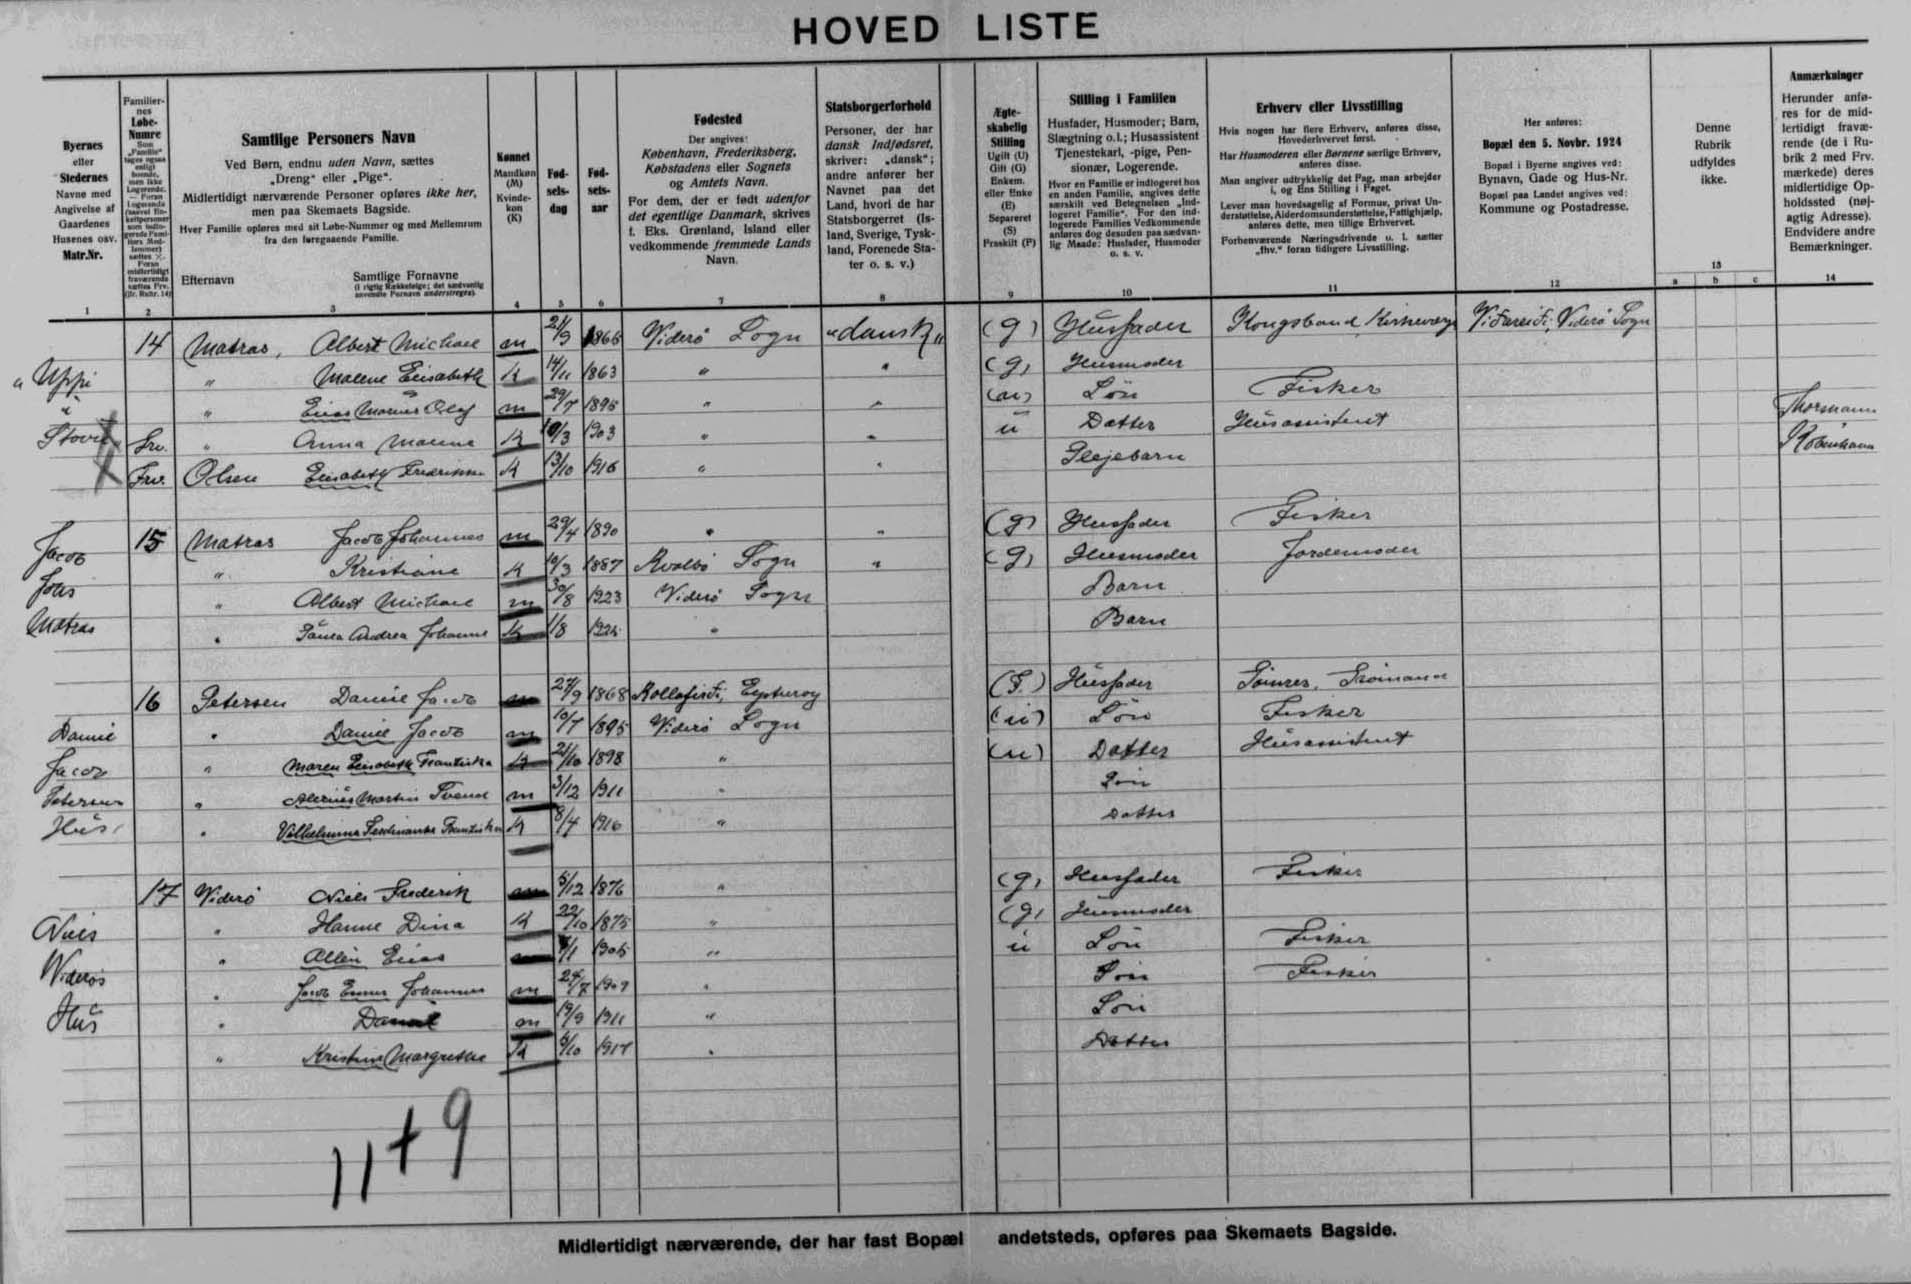 HOVED LISTE
Byernes
eller
Stedernes
Navne med
Angivelse af
Gaardenes
Husenes osv.
Matr.Nr.
1
Familier-
nes
Løbe-
Numre
2
Samtlige Personers Navn
Ved Børn, endnu uden Navn, sættes
„Dreng“ eller „Pige“.
Midlertidigt nærværende Personer opføres ikke her,
men paa Skemaets Bagside.
Hver Familie opføres med sit Løbe-Nummer og med Mellemrum
fra den foregaaende Familie.
Efternavn
Samtlige Fornavne
(i rigtig Rækkefølge; det sædvanlig
anvendte Fornavn understreges).
3
Kønnet
Mandkøn
(M)
Kvinde-
køn
(K)
4
Fød-
sels-
dag
5
Fød-
sels-
aar
6
Fødested
Der angives:
København, Frederiksberg,
Købstadens eller Sognets
og Amtets Navn.
For dem, der er født udenfor
det egentlige Danmark, skrives
f. Eks. Grønland, Island eller
vedkommende fremmede Lands
Navn.
7
Statsborgerforhold
Personer, der har
dansk Indfødsret,
skriver: „dansk“;
andre anfører her
Navnet paa det
Land, hvori de har
Statsborgerret (Is-
land, Sverige, Tysk-
land, Forenede Sta-
ter o. s. v.)
8
Ægte-
skabelig
Stilling
Ugift (U)
Gift (G)
Enkem.
eller Enke
(E)
Separeret
(S)
Fraskilt (F)
9
Stilling i Familien
Husfader, Husmoder; Barn,
Slægtning o.l.; Husassistent
Tjenestekarl, -pige, Pen-
sionær, Logerende.
Hvor en Familie er indlogeret hos
en anden Familie, angives dette
særskilt ved Betegnelsen „Ind-
logeret Familie“. For den ind-
logerede Families Vedkommende
anføres dog desuden paa sædvan-
lig Maade: Husfader, Husmoder
o. s. v.
10
Erhverv eller Livsstilling
Hvis nogen har flere Erhverv, anføres disse,
Hovederhvervet først.
Har Husmoderen eller Børnene særlige Erhverv,
anføres disse.
Man angiver udtrykkelig det Fag, man arbejder
i, og Ens Stilling i Faget.
Lever man hovedsagelig af Formue, privat Un-
derstøttelse, Alderdomsunderstøttelse, Fattighjælp,
anføres dette, men tillige Erhvervet.
Forhenværende Næringsdrivende o. l. sætter
„fhv.“ foran tidligere Livsstilling.
11
Her anføres:
Bopæl den 5. Novbr. 1924
Bopæl i Byerne angives ved:
Bynavn, Gade og Hus-Nr.
Bopæl paa Landet angives ved:
Kommune og Postadresse.
12
Denne
Rubrik
udfyldes
ikke.
13
a b c
Anmærkninger
Herunder anfø-
res for de mid-
lertidigt fravæ-
rende (de i Ru-
brik 2 med Frv.
mærkede) deres
midlertidige Op-
holdssted (nøj-
agtig Adresse).
Endvidere andre
Bemærkninger.
14
14 Matras, Albert Michael m 21/9 1866 Viderø Sogn "dansk" (g) Husfader Kongsbonde, Kirkeværge Vidareidi, Viderø Sogn
"Uppi " Malene Elisabeth K 14/11 1863 " " (g) Husmoder
" " Elias Marius Olaf m 29/7 1895 " " (u) Søn Fisker
Stovu Frv. " Anna Malene K 19/3 1903 " " u Datter Husassistent Thormann
Frv. Olsen Elisabeth Fredrikke K 13/10 1916 " " Plejebarn København
15 Matras Jacob Johannes m 29/4 1890 " " (g) Husfader Fisker
Jacob " Kristiane K 10/3 1887 Kvalbø Sogn " (g) Husmoder Jordemoder
Joh's " Albert Michael m 30/8 1923 Viderø Sogn Barn
Matras " Andrea Johanne K 1/8 1924 " Barn
16 Petersen Daniel Jacob m 27/9 1868 Kollafirdi, Eysturoy Husfader
Daniel " Daniel Jacob m 10/7 1895 Viderø Sogn (u) Søn Fisker
Jacob " Maren Elisabeth Franziska K 21/10 1898 " (u) Datter Husassistent
Petersens " Martin Svend m 3/12 1911 " Søn
Hus " Vilhelmine Ferdinanda K 8/4 1916 " Datter
17 Viderø Niels Frederik m 5/12 1876 " (g) Husfader Fisker
Niels " Hanne Dina K 22/10 1875 " (g) Husmoder
" Allin Elias m 1905 " u Søn Fisker
Viderøs " Jacob Johannes m 24/7 1909 " Søn Fisker
Hus " Daniel m 19/9 1911 " Søn
" Kristine Margrethe K 5/10 1917 " Datter
11+9
Midlertidigt nærværende, der har fast Bopæl andetsteds, opføres paa Skemaets Bagside.